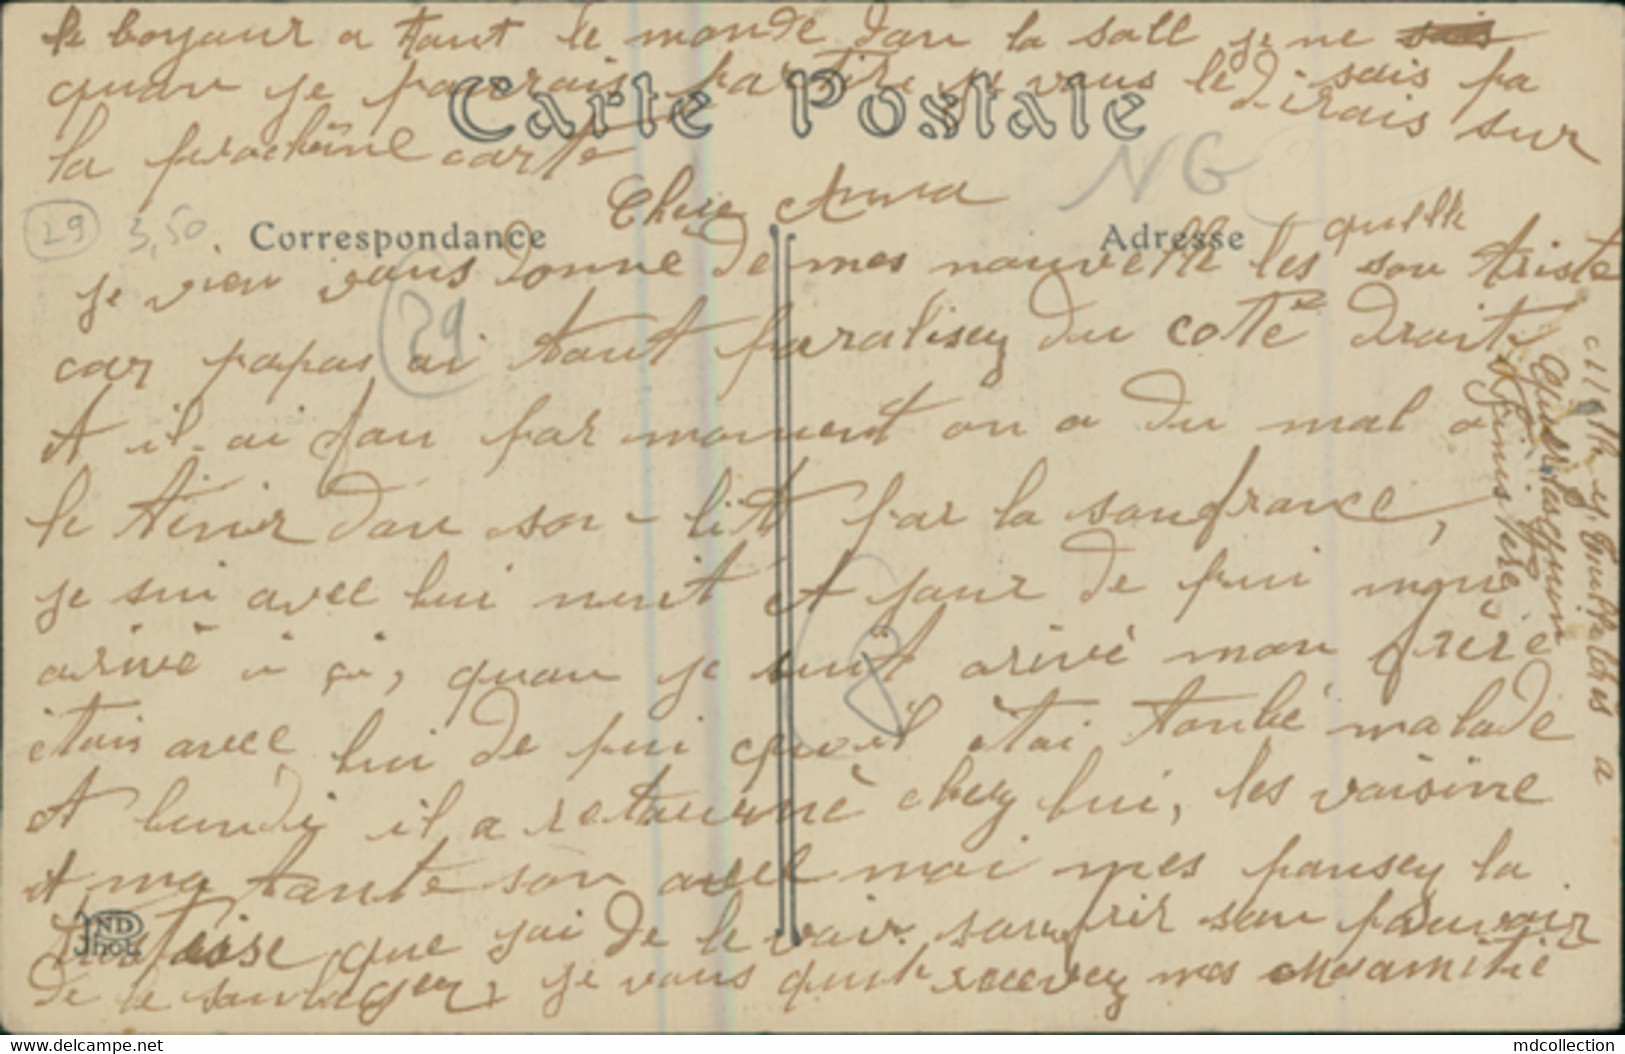 le bonjour a tout le monde dan la sall je ne sais
quan je pourais partire je vous le dirais sur sais pa
la prochêine carte
Carte Postale
NG
Chere Anna
29 3,50
Correspondance
Adresse
je vien vous donne de mes nouvelle les quelle son triste
car papas ai tout paralisey du coté droit
29
et il ai fou par moment on a du mal a
le tenir dan son lit par la soufrance,
je sui avec lui nuit et jour de pui mon
arivé i çi, quan je suit arivé mon frère
8
étais avec lui de pui qu'il étai tonbé malade
et lundi il a retourné chez lui, les voisine
et ma tante son avec moi mes pansey la
tristeise que jai de le voir soufrir san pouvoir
ND Phot
de le soulagey, je vous quite recevez mes amitié
www.delcampe.net
mdcollection